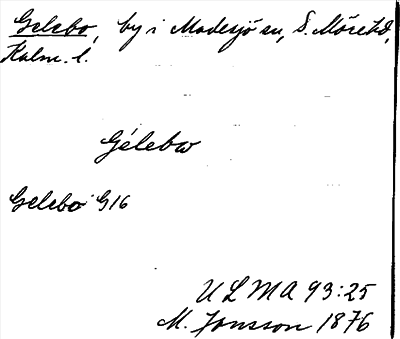 Gelebo, by i Madesjö sn, S. Möre hd,
Kalm. l.
Gélebω
Gelebo G16
ULMA 93:25
M. Jonsson 1876